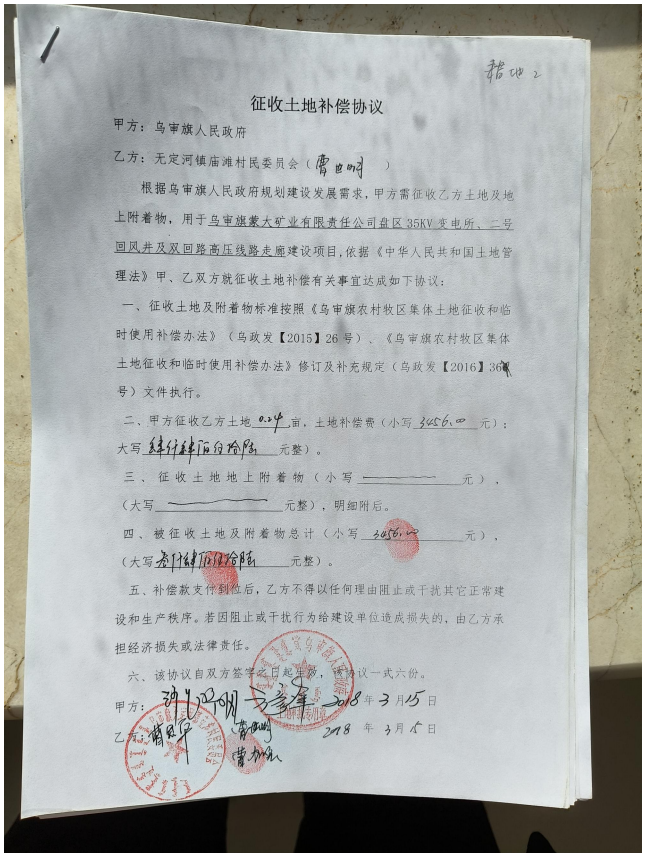 借地2
征收土地补偿协议
甲方：乌审旗人民政府
乙方：无定河镇庙滩村民委员会（曹世明）
根据乌审旗人民政府规划建设发展需求，甲方需征收乙方土地及地
上附着物，用于乌审旗蒙大矿业有限责任公司盘区35KV变电所、二号
回风井及双回路高压线路走廊建设项目，依据《中华人民共和国土地管
理法》甲、乙双方就征收土地补偿有关事宜达成如下协议：
一、征收土地及附着物标准按照《乌审旗农村牧区集体土地征收和临
时使用补偿办法》（乌政发【2015】26号）、《乌审旗农村牧区集体
土地征收和临时使用补偿办法》修订及补充规定（乌政发【2016】36
号）文件执行。
二、甲方征收乙方土地0.24亩，土地补偿费（小写3456.00元）；
大写 肆仟肆佰伍拾陆 元整）。
三、征收土地地上附着物（小写 元），
（大写 元整），明细附后。
四、被征收土地及附着物总计（小写3456.00元），
（大写叁仟肆佰伍拾陆元整）。
五、补偿款支付到位后，乙方不得以任何理由阻止或干扰其它正常建
设和生产秩序。若因阻止或干扰行为给建设单位造成损失的，由乙方承
担经济损失或法律责任。
六、该协议自双方签字之日起生效，该协议一式六份。
甲方： 2018年3月15日
乙方： 曹世明 2018年3月15日